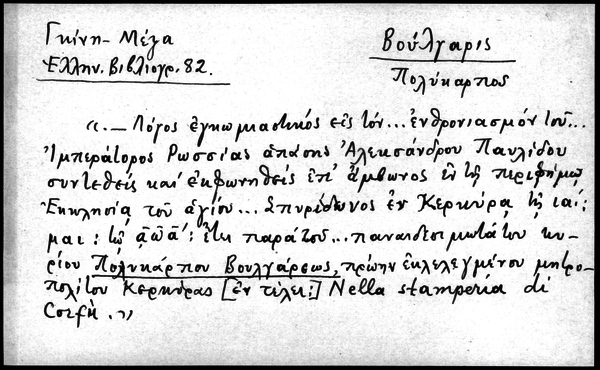 Γκίνη-Μέξα
Ἑλλην. Βιβλιογρ. 82.
Βούλγαρις
Πολύκαρπος
«.— Λόγος ἐγκωμιαστικός εἰς τόν... ἐνθρονιασμόν τοῦ...
Ἰμπεράτορος Ρωσσίας ἁπάσης Ἀλεξάνδρου Παυλίδου
συντεθείς καί ἐκφωνηθείς ἐπ' ἄμβωνος ἐν τῇ περιφήμῳ
Ἐκκλησίᾳ τοῦ ἁγίου... Σπυρίδωνος ἐν Κερκύρᾳ τῇ ιαῃ:
μαι: τῷ ͵αωα': ἔτει παρά τοῦ... παναιδεσιμωτάτου κυ-
ρίου Πολυκάρπου Βουλγάρεως, πρώην ἐκλελεγμένου μητρο-
πολίτου Κερκύρας [ἐν τέλει:] Nella stamperia di
Corfù.»